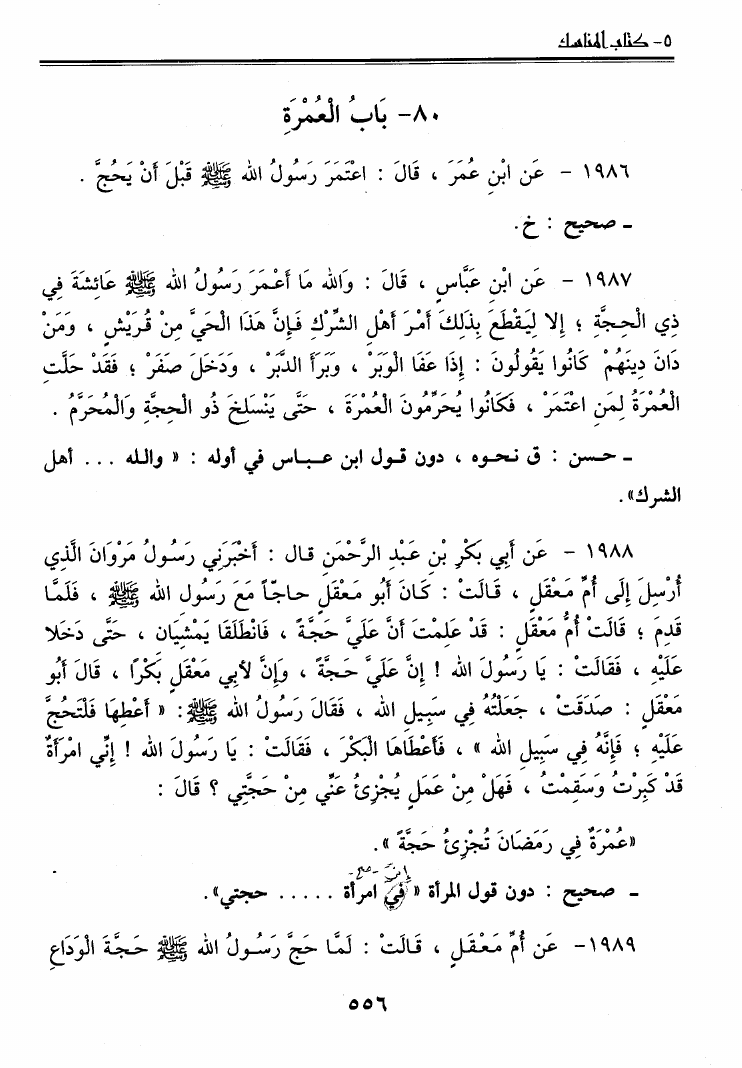 ٥- كتاب المناسك
٨٠- بَابُ الْعُمْرَةِ
١٩٨٦ - عَن ابْنِ عُمَرَ ، قَالَ : اعْتَمَرَ رَسُولُ الله ﷺ قَبْلَ أَنْ يَحُجَّ .
ـ صحيح : خ.
١٩٨٧ - عَن ابْنِ عَبَّاسٍ ، قَالَ : وَالله مَا أَعْمَرَ رَسُولُ الله ﷺ عَائِشَةَ فِي
ذِي الْحِجَّةِ ؛ إِلا لِيَقْطَعَ بِذَلِكَ أَمْرَ أَهْلِ الشِّرْكِ فَإِنَّ هَذَا الْحَيَّ مِنْ قُرَيْشٍ ، وَمَنْ
دَانَ دِينَهُمْ كَانُوا يَقُولُونَ : إِذَا عَفَا الْوَبَرْ ، وَبَرَأَ الدَّبَرْ ، وَدَخَلَ صَفَرْ ؛ فَقَدْ حَلَّتِ
الْعُمْرَةُ لِمَنِ اعْتَمَرْ ، فَكَانُوا يُحَرِّمُونَ الْعُمْرَةَ ، حَتَّى يَنْسَلِخَ ذُو الْحِجَّةِ وَالْمُحَرَّمُ .
ـ حسن : ق نحوه ، دون قول ابن عباس في أوله : « والله ... أهل
الشرك».
١٩٨٨ - عَن أَبِي بَكْرِ بْنِ عَبْدِ الرَّحْمَنِ قال : أَخْبَرَنِي رَسُولُ مَرْوَانَ الَّذِي
أُرْسِلَ إِلَى أُمِّ مَعْقَلٍ ، قَالَتْ : كَانَ أَبُو مَعْقَلٍ حاجّاً مَعَ رَسُولِ الله ﷺ ، فَلَمَّا
قَدِمَ ؛ قَالَتْ أُمُّ مَعْقَلٍ : قَدْ عَلِمْتَ أَنَّ عَلَيَّ حَجَّةً ، فَانْطَلَقَا يَمْشِيَانِ ، حَتَّى دَخَلا
عَلَيْهِ ، فَقَالَتْ : يَا رَسُولَ الله ! إِنَّ عَلَيَّ حَجَّةً ، وَإِنَّ لأَبِي مَعْقَلٍ بَكْرًا ، قَالَ أَبُو
مَعْقَلٍ : صَدَقَتْ ، جَعَلْتُهُ فِي سَبِيلِ الله ، فَقَالَ رَسُولُ الله ﷺ : « أَعْطِهَا فَلْتَحُجَّ
عَلَيْهِ ؛ فَإِنَّهُ فِي سَبِيلِ الله » ، فَأَعْطَاهَا الْبَكْرَ ، فَقَالَتْ : يَا رَسُولَ الله ! إِنِّي امْرَأَةٌ
قَدْ كَبِرْتُ وَسَقِمْتُ ، فَهَلْ مِنْ عَمَلٍ يُجْزِئُ عَنِّي مِنْ حَجَّتِي ؟ قَالَ :
«عُمْرَةٌ فِي رَمَضَانَ تُجْزِئُ حَجَّةً ».
ـ صحيح : دون قول المرأة « في امرأة ..... حجتي».
١٩٨٩- عَن أُمِّ مَعْقَلٍ ، قَالَتْ : لَمَّا حَجَّ رَسُولُ الله ﷺ حَجَّةَ الْوَدَاعِ
٥٥٦